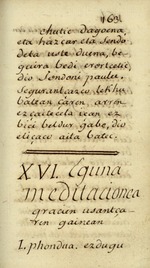 163
chutic dagoena,
eta hazcar eta sendo
deta uste duena, be-
guira bedi erortcetic
dio Jondoni paulec.
Segurantçaco lekhu
batean çaren, arren
ezçaitecela içan ez
bici beldur gabe, dio
eliçaco aita batec.
XVI. Eguna
meditacionea
graciez usantça-
ren gainean
I. phondua. ezdugu